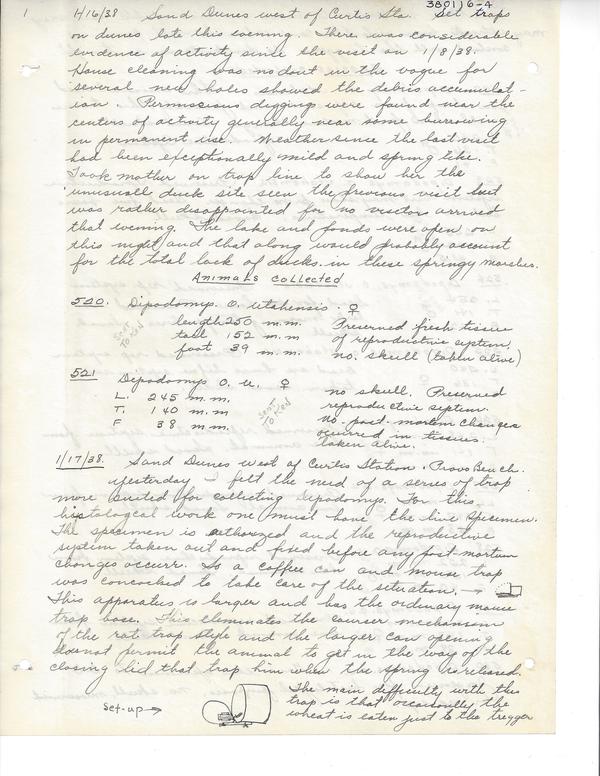 1
380116-4
1/16/38 Sand Dunes west of Curtis Sta. Set traps
on dunes late this evening. There was considerable
evidence of activity since the visit on 1/8/38.
House cleaning was no dout in the vogue for
several new holes showed the debris accumulat-
ion. Permiscious diggings were found near the
centers of activity generally near some burrowing
in permanent use. Weather since the last visit
had been exceptionally mild and spring like.
Took mother on trap line to show her the
unusuall duck site seen the previous visit but
was rather disappointed for no visitor arrived
that evening. The lake and ponds were open on
this night and that along would probably account
for the total lack of ducks in these springy marshes.
Animals Collected
520. Dipodomys O. utahensis. ♀
length 250 m.m. Preserved fresh tissue
tail 152 m.m of reproductive septem.
foot 39 m.m. no. skull (taken alive)
Sent To Ken
521 Dipodomys O. u. ♀
L. 245 m.m. no skull. Preserved
T. 140 m.m reproductive septem.
F 38 m.m. no. post. mortem changes
occurred in tissues.
taken alive.
Sent To Ken
1/17/38. Sand Dunes west of Curtis Station. Provo Bench.
Yesterday I felt the need of a series of trap
more suited for collecting Dipodomys. For this
histological work one must have the live specimen.
The specimen is eutherized and the reproductive
system taken out and fixed before any post-mortum
changes occurr. So a coffee can and mouse trap
was concocked to take care of the situation. →
This apparatus is larger and has the ordinary mouse
trap base. This eleminates the courser mechanism
of the rat trap style and the larger can opening
doesnot permit the animal to get in the way of the
closing lid that trap him when the spring is released.
set-up →
The main difficulty with this
trap is that occasionally the
wheat is eaten just to the tregger